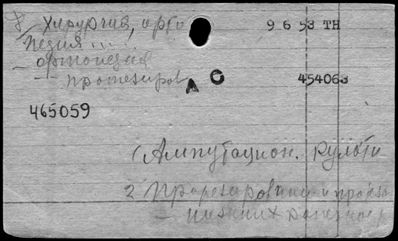 Хирургия, орто
педия....
— ортопедия
— протезиров
А С
9 6 53 ТН
454063
465059
(Ампутацион. культи
2 Протезирование и протезы
— нижних конечнос